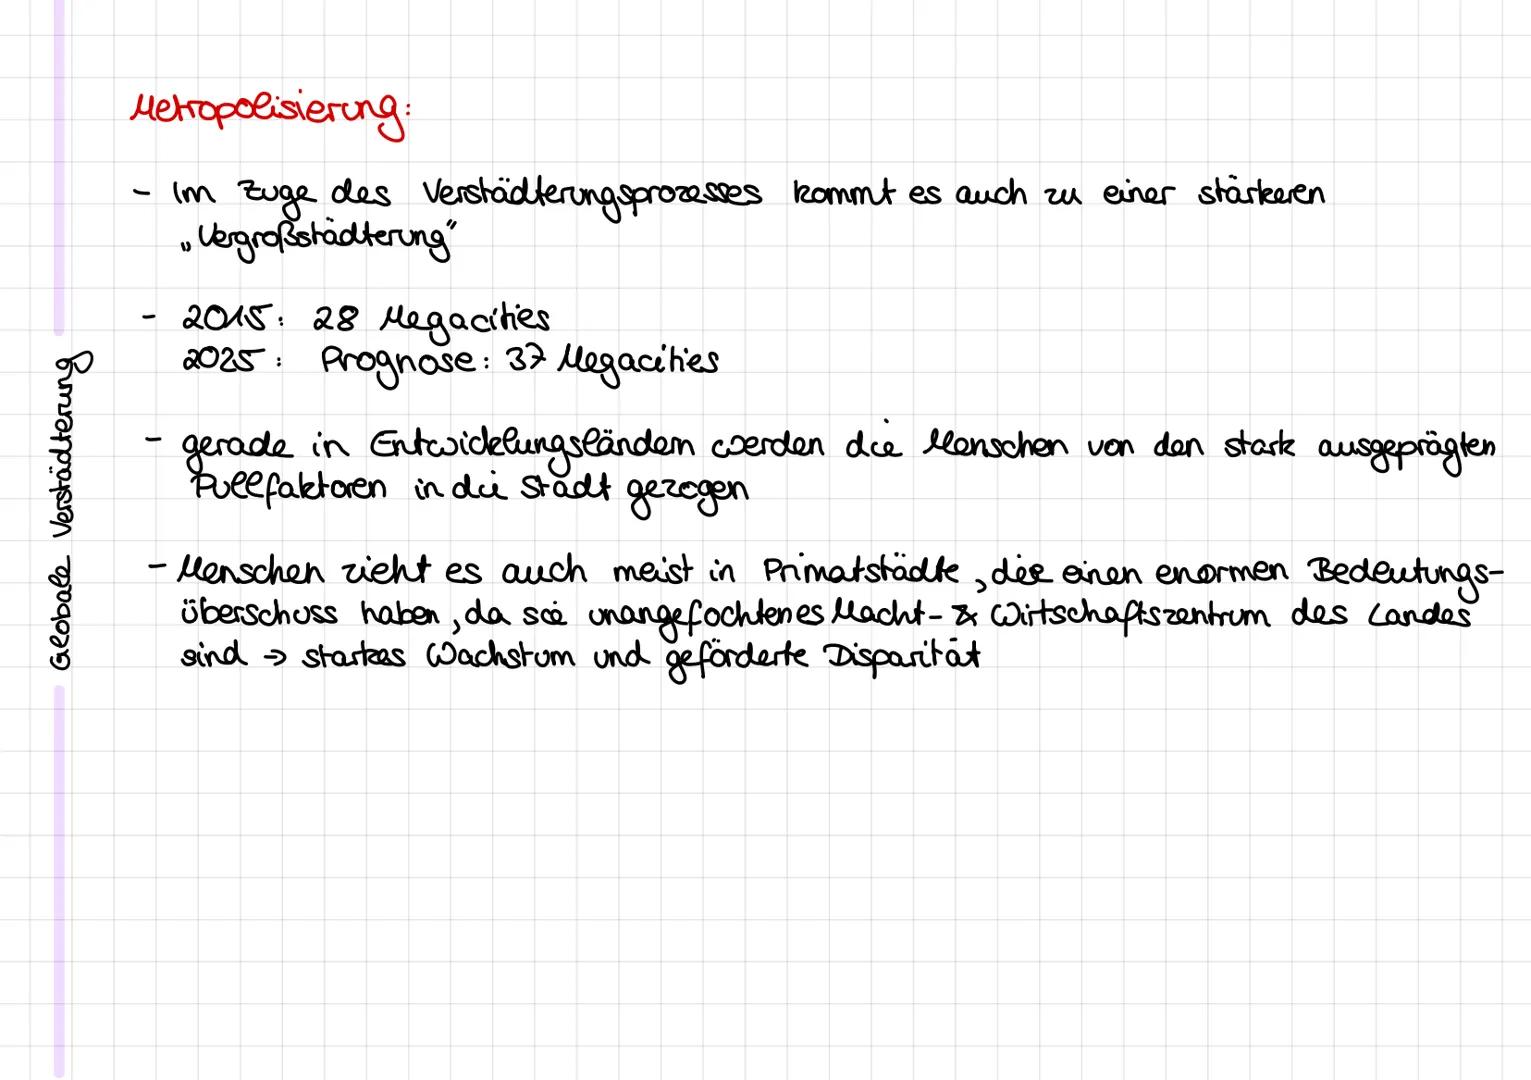 Globale Verstädterung
Metropolisierung:
- Im Zuge des Verstädterungsprozesses kommt es auch zu einer stärkeren
„Vergroßstädterung"
- 2015: 28 Megacities
2025: Prognose: 37 Megacities
- gerade in Entwicklungsländern werden die Menschen von den stark ausgeprägten
Pullfaktoren in die Stadt gezogen
- Menschen zieht es auch meist in Primatstädte, die einen enormen Bedeutungs-
überschuss haben, da sie unangefochtenes Macht- & Wirtschaftszentrum des Landes
sind → starkes Wachstum und geförderte Disparität